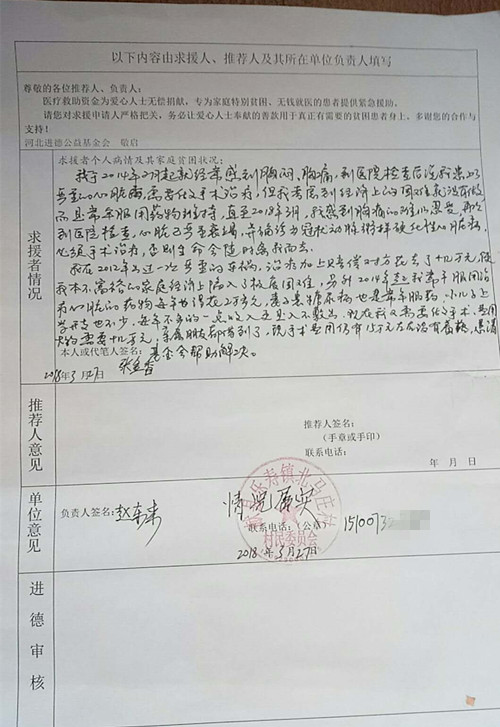 以下内容由求援人、推荐人及其所在单位负责人填写
尊敬的各位推荐人、负责人:
医疗救助资金为爱心人士无偿捐献，专为家庭特别贫困、无钱就医的患者提供紧急援助。
请您对求援申请人严格把关，务必让爱心人士奉献的善款用于真正有需要的贫困患者身上。多谢您的合作与
支持!
河北进德公益基金会 敬启
求援者情况
求援者个人病情及其家庭贫困状况:
我于2014年2月起就经常感到胸闷，胸痛，到医院检查后说我患的
严重的心脏病，需要做手术治疗，但我考虑到经济上的困难就没有做
而是常年服用药物维持，直至2018年3月，我感到胸痛的难以忍受，再次
到医院检查，心脏已严重衰竭，并确诊为冠状动脉粥样硬化性心脏病，
必须手术治疗，否则生命会随时离我而去。
我在2012年出过一次严重的车祸，治疗加上赔偿对方花去了十几万元，使
我本不富裕的家庭经济上陷入了极度困难，另外2014年起我常年服用治
疗心脏的药物每年也得花2万多元，妻子患糖尿病也是常年服药，小儿子上
学开支也不少，每年不多的一点收入还是入不敷出，现在我又需要做手术，费用
大约需要十几万元，亲属朋友都借到了，现手术费用仍有15万左右没有着落，恳请
本人或代笔人签名:
基金会帮助解决。
2018年3月27日
推荐人意见
推荐人签名:
(手章或手印)
联系电话:
年 月 日
单位意见
负责人签名:
情况属实
联系电话: (公章) 1510073
乐寿镇北马庄村
村民委员会
2018年3月27日
进德审核